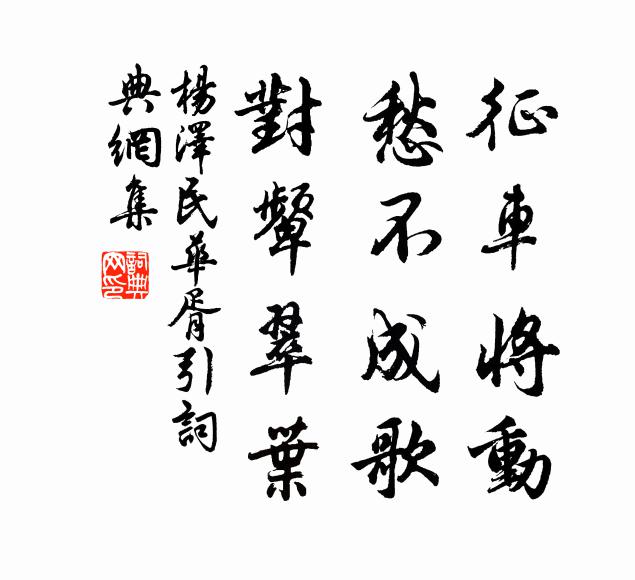 征車將動
愁不成歌
對顰翠葉
楊澤民華胥引詞
典網集
詞典網印